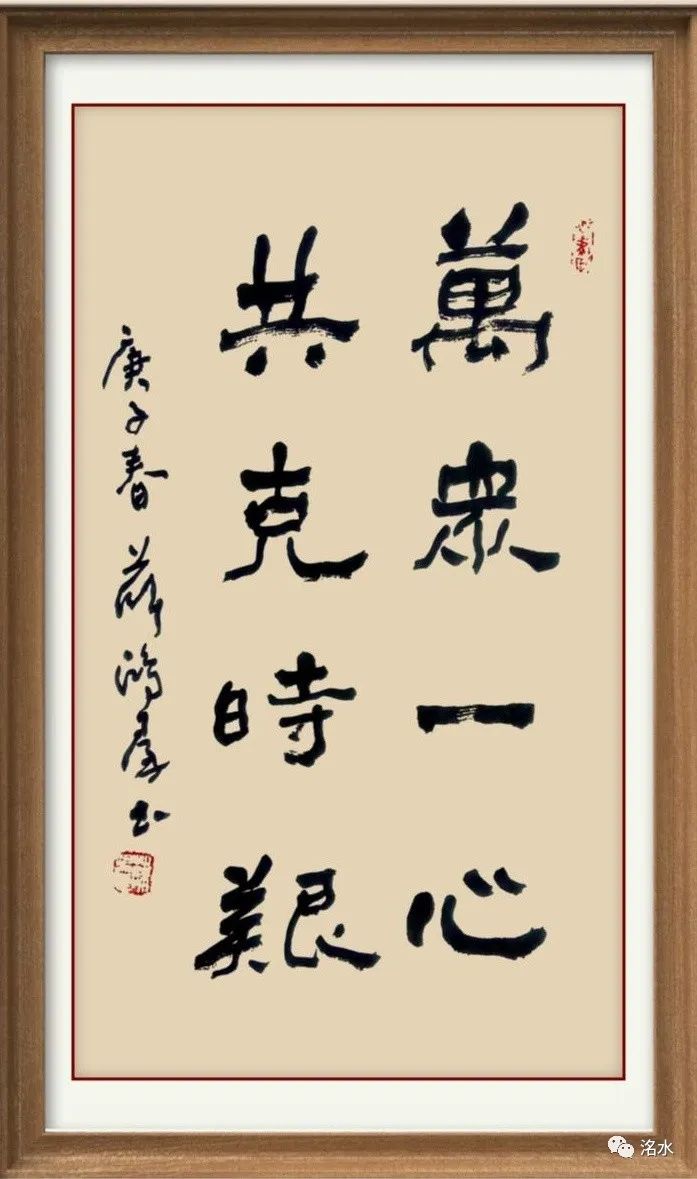 萬眾一心
共克時艱
庚子春 薛鴻群书
洺水